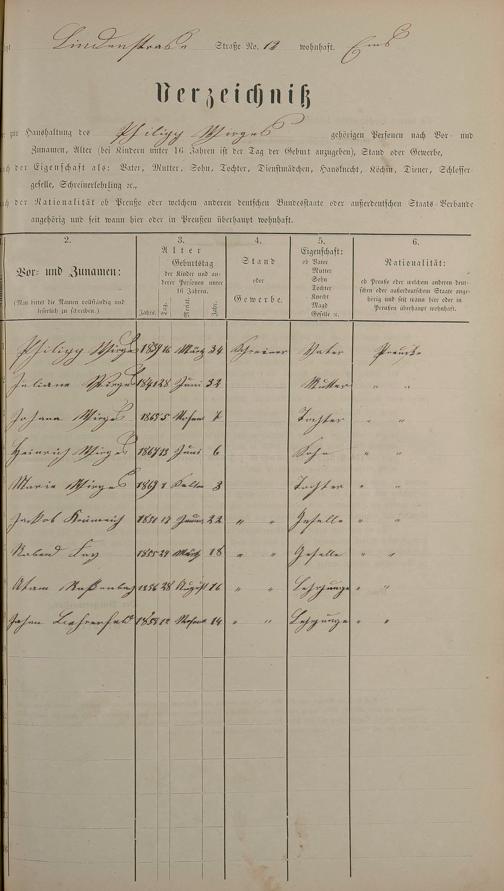 Lindenstrasse Straße No. 12 wohnhaft. Ems
Verzeichniß
zur Haushaltung des Philipp Wirges gehörigen Personen nach Vor- und
Zunamen, Alter (bei Kindern unter 16 Jahren ist der Tag der Geburt anzugeben), Stand oder Gewerbe,
der Eigenschaft als: Vater, Mutter, Sohn, Tochter, Dienstmädchen, Hausknecht, Köchin, Diener, Schlosser-
geselle, Schreinerlehrling ꝛc.,
der Nationalität ob Preuße oder welchem anderen deutschen Bundesstaate oder außerdeutschen Staats-Verbande
angehörig und seit wann hier oder in Preußen überhaupt wohnhaft.
2. 3. 4. 5. 6.
Vor- und Zunamen:
(Man bittet die Namen vollständig und
leserlich zu schreiben.)
Alter
Geburtstag
der Kinder und an-
derer Personen unter
16 Jahren.
Jahr. Tag. Monat. Jahr.
Stand
oder
Gewerbe.
Eigenschaft:
ob Vater
Mutter
Sohn
Tochter
Knecht
Magd
Geselle ꝛc.
Nationalität:
ob Preuße oder welchem andern deut-
schen oder außerdeutschen Staate ange-
hörig und seit wann hier oder in
Preußen überhaupt wohnhaft.
Philipp Wirges 1839 16 März 34 Schreiner Vater Preuße
Juliane Wirges 1841 28 Juni 32 Mutter " "
Johana Wirges 1865 5 Tochter " "
Heinrich Wirges 1867 13 Juni 6 Sohn " "
Marie Wirges 1869 3 Tochter " "
Jackob 1851 22 " " Geselle " "
1855 24 März 18 " " Geselle " "
Adam 1856 28 August 16 " " Lehrjunge " "
Johan 14 " " Lehrjunge " "